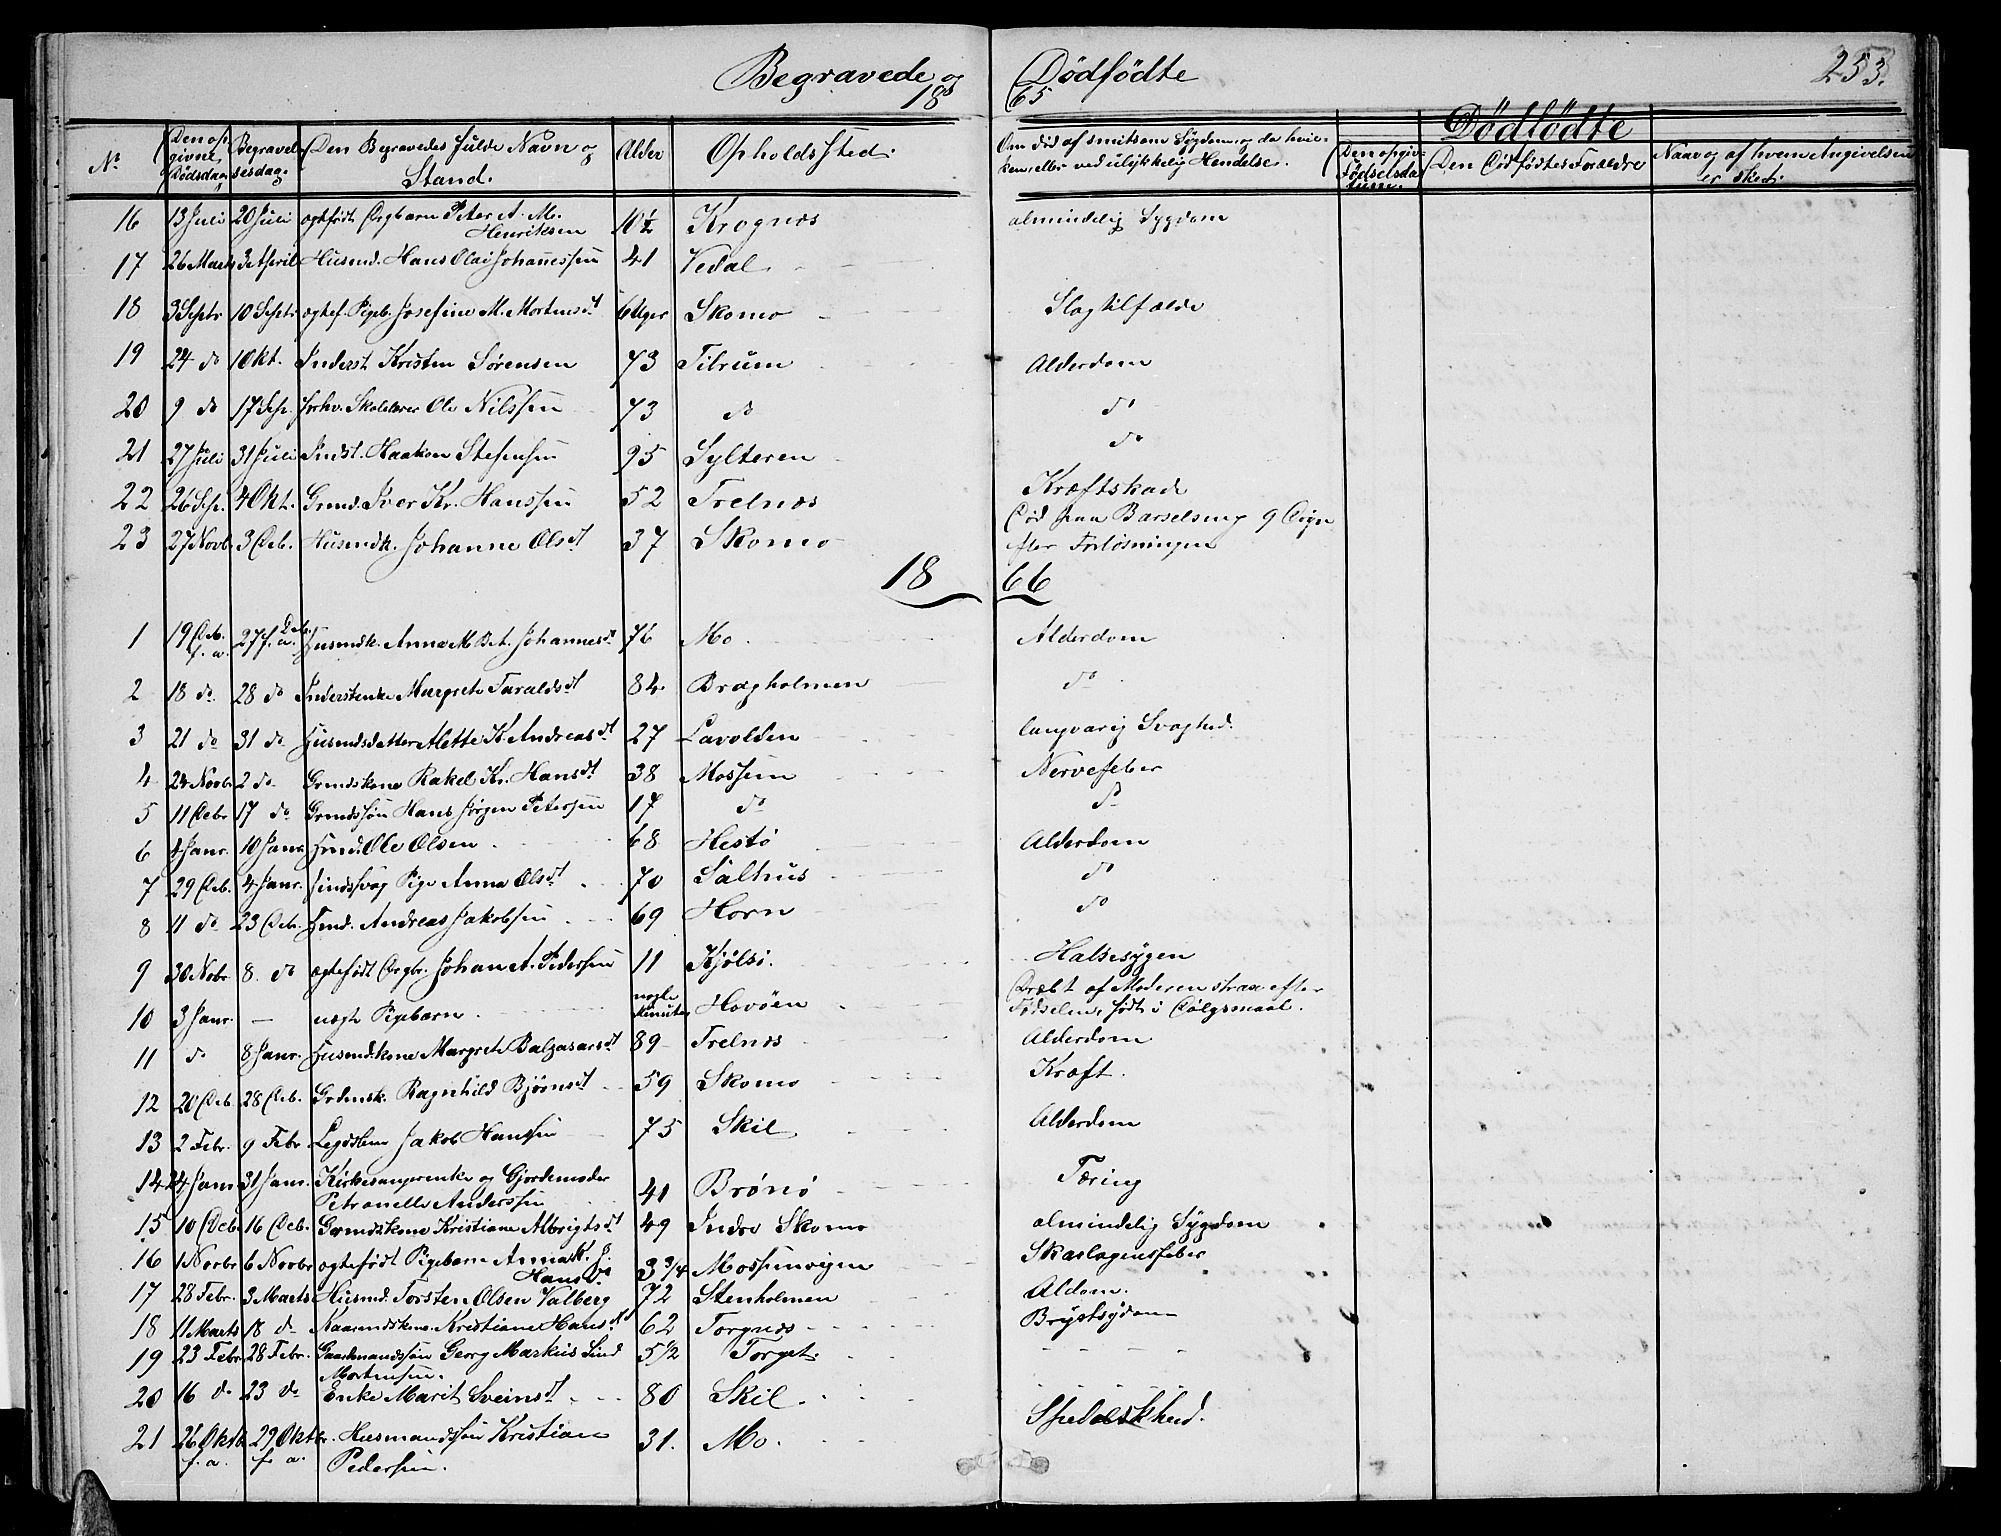 Begravede og Dødfødte
253.
1865
Dødfødte
No
Den opgivne Dødsdag
Begravelsesdag.
Den Begravedes fulde Navn og Stand.
Alder
Opholdssted.
Om død af smitsom Sygdom, og da hvilken, eller ved ulykkelig Hendelse.
Den opgiv. Fødselsdatum.
Den Dødfødtes Forældre
Naar og af hvem Angivelsen er sket.
16 13 Juli 20 Juli ægtefødt Drgbarn Peter A. M. Henriksen 10½ Krognæs almindelig Sygdom
17 26 Marts 3 April Husmd. Hans Olai Johannessen 41 Vedal
18 3 Septr 10 Septr ægtef. Pigeb. Josefine M. Mortensdt 6 Uger Skomo Slagtilfælde
19 24 do 1 Okt. Inderst Kristen Sørensen 73 Tilrum Alderdom
20 9 do 17 Sep. forhv. Skolelærer Ole Nilssen 73 do do
21 27 Juli 31 Juli Indst. Haakon Stefensen 95 Sylteren do
22 26 Sep. 4 Okt. Grmd. Iver Kr. Hanssen 52 Trelnæs Kræftskade
23 27 Novb. 3 Deb. Husmdk. Johanne Olsdt 37 Skomo Død paa Barselseng 9 Døgn efter Forløsningen
1866
1 19 Deb. f. a. 27 Deb. f. a. Husmdk. Anna M. B. A. Johannesdt 76 Mo Alderdom
2 18 do 28 do Inderstenke Margrete Taraldsdt 84 Bragholmen do
3 21 do 31 do Husmdsdatter Alette K. Andreasdt 27 Lavolden langvarig Svaghed.
4 24 Novbr 2 do Grmdskone Rakel Kr. Hansdt 38 Mossem Nervefeber
5 11 Debr 17 do Grmdssøn Hans Jørgen Petersen 17 do do
6 4 Janr. 10 Janr Husmd. Ole Olsen 68 Hestø Alderdom
7 29 Deb. 4 Janr. sindssvag Pige Anna Olsdt 70 Salhus do
8 11 do 23 Deb. Hmd. Andreas Jakobsen 69 Horn do
9 30 Nobr 8 do ægtefødt Drgbr. Johan A. Pedersen 11 Kjølsø. Halsesygen
10 3 Janr. — uægte Pigebarn nogle Minuter Hovøen Dræbt af Moderen strax efter Fødselen, født i Dølgsmaal.
11 do 8 Janr. Husmdkone Margrete Balzasarsdt 89 Trelnæs Alderdom
12 20 Deb 28 Deb. Grdmsk. Ragnhild Bjørnsdt 59 Skomo Kræft.
13 2 Febr. 9 Febr Legdslem Jakob Hanssen 75 Skil Alderdom
14 24 Janr 31 Janr. Kirkesangerenke og Gjordemoder Petronelle Anderssen 41 Brønø Tæring
15 10 Deb. 16 Deb. Grmdskone Kristiane Albrigtsdt 49 Indre Skomo almindelig Sygdom
16 1 Novbr 6 Novbr ægtefødt Pigebarn Anna K. J. Hansdt 3 3/4 Mossemvigen Skarlagensfeber
17 28 Febr. 3 Marts Husmd. Torsten Olsen Valberg 72 Stenholmen Aldom.
18 11 Marts 18 do Kaarmdskone Kristiane Hansdt 62 Torgnæs Brystsygdom
19 23 Febr. 28 Febr. Gaardmandssøn Georg Markus Lind Mortensen. 5 1/2 Torget
20 16 do 23 do Enke Marit Sveinsdt 80 Skil
21 26 Oktb. f. a. 29 Oktbr. f. a. Husmandssøn Kristian Pedersen. 31. Mo. Spedalskhed.